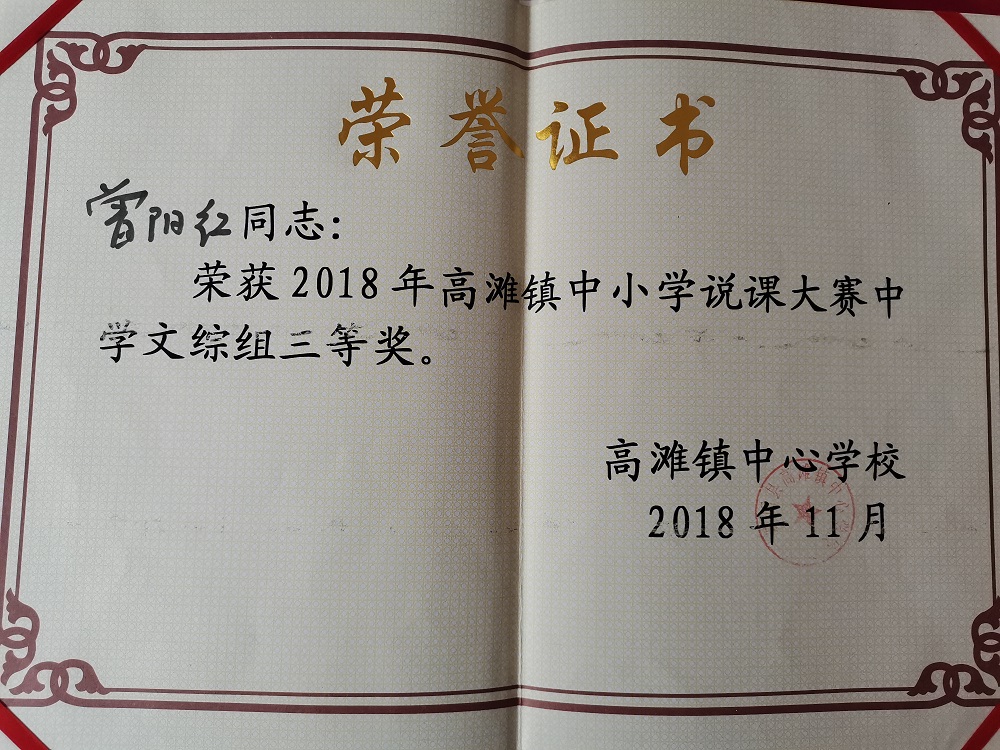 荣誉证书
曾阳红同志：
荣获2018年高滩镇中小学说课大赛中
学文综组三等奖。
高滩镇中心学校
2018年11月
县高滩镇中心